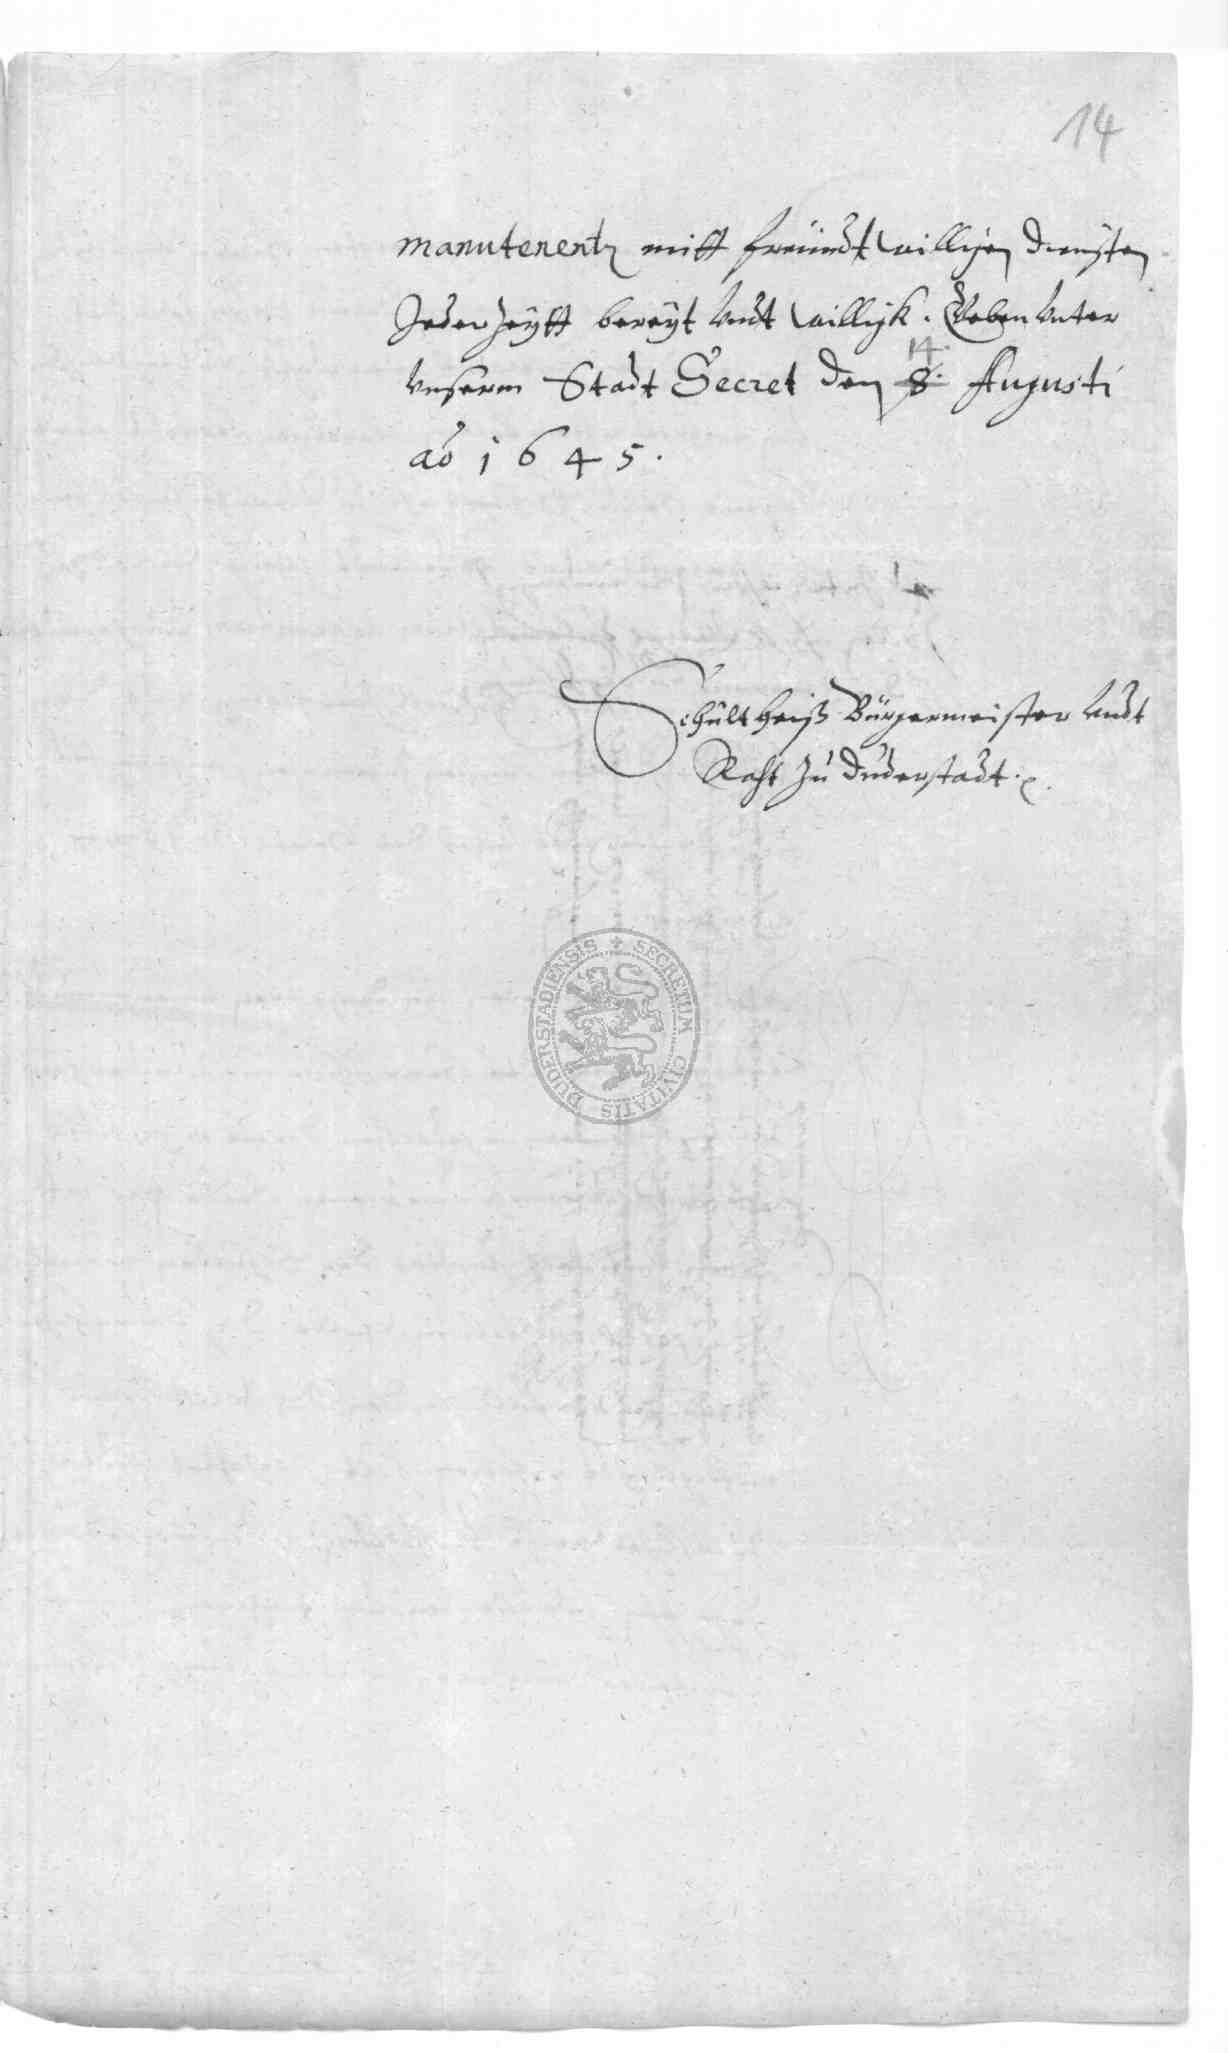 14
manutenentz mitt freündtwilligen diensten
Jederzeytt bereyt vndt willigk. Geben vnter
vnserm Stadt Secret den 8. 14. Augusti
ao 1645.
Schültheiß Bürgermeister vndt
Raht zu Duderstadt.
SECRETUM CIVITATIS DUDERSTADIENSIS